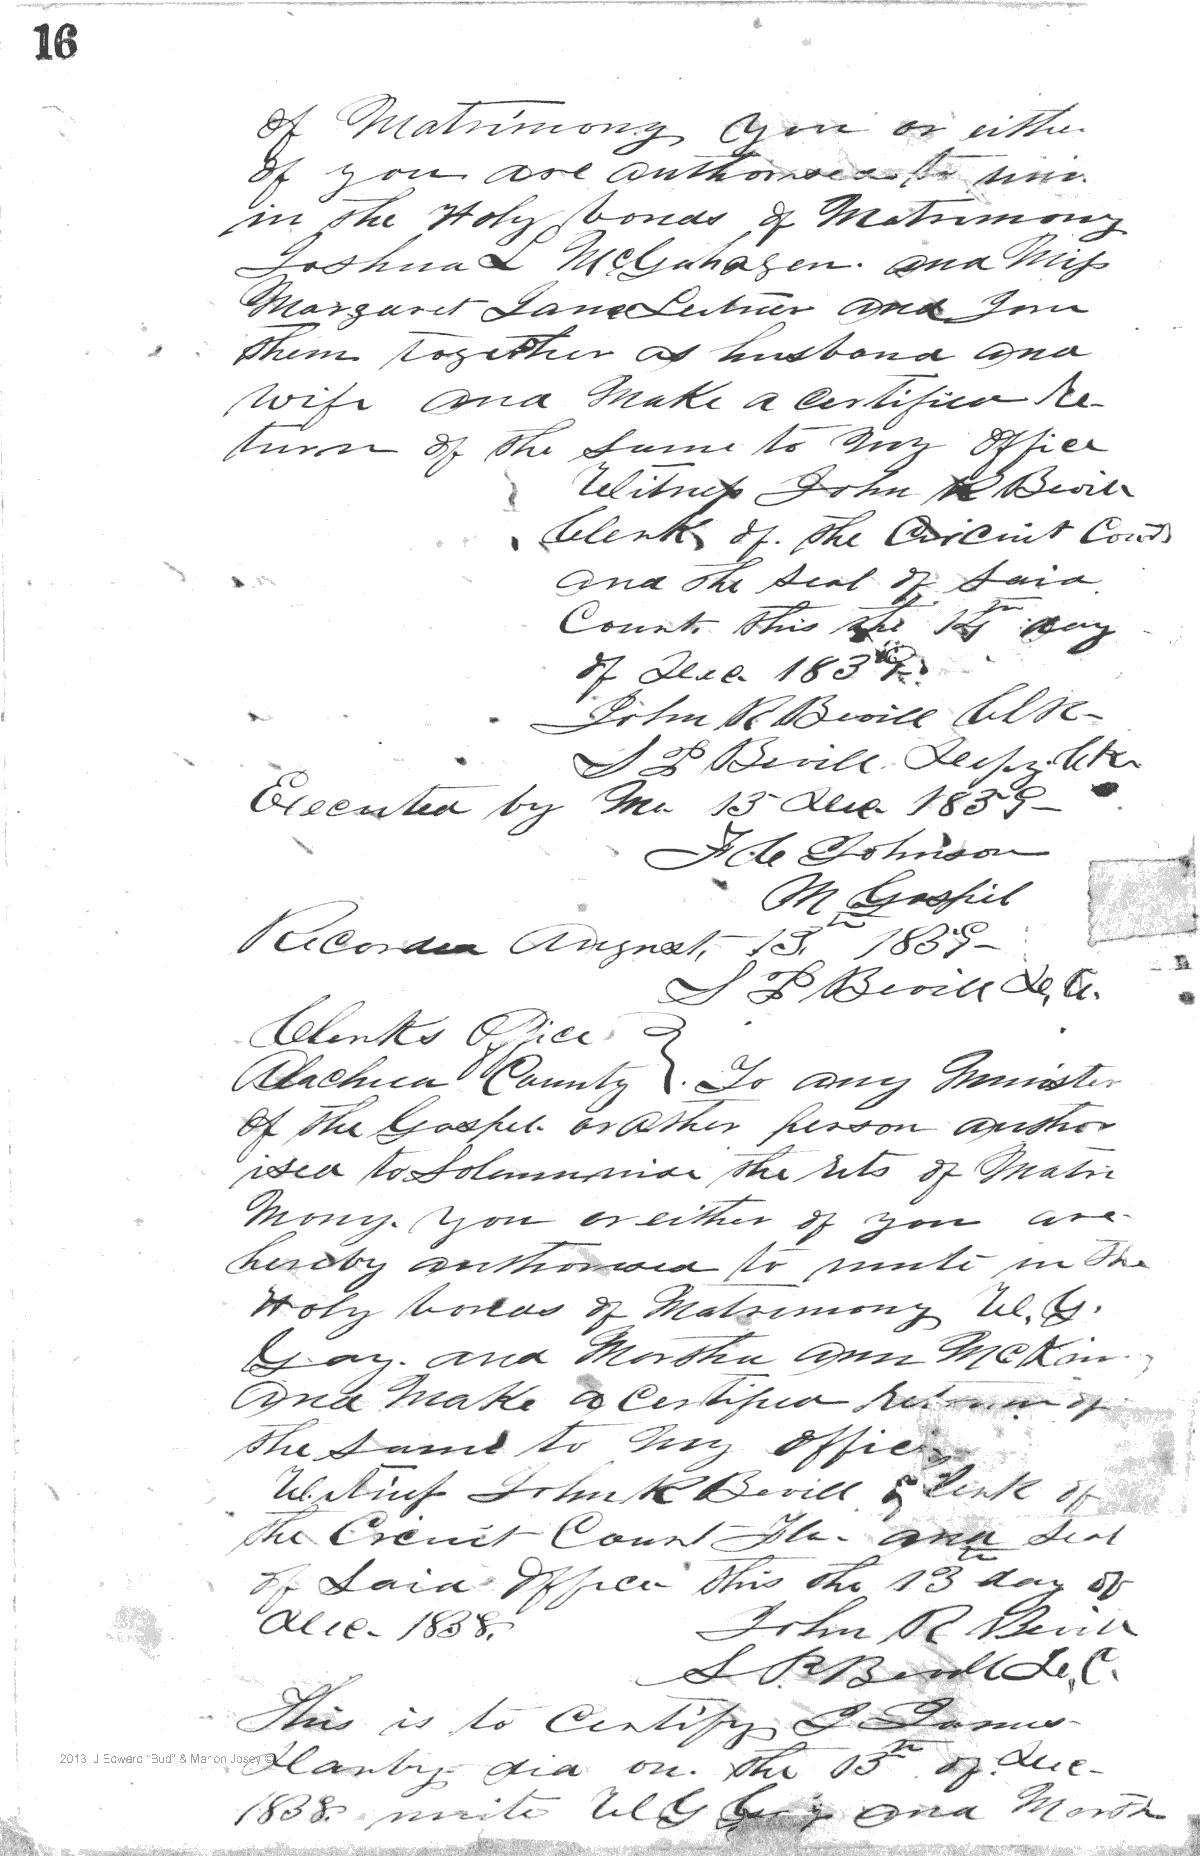 16
of Matrimony you or either
of you are authorised to
in the Holy bonds of Matrimony
Joshua L McGahagen. and Miss
Margaret Jane Leitner and Join
them together as husband and
wife and Make a certified Re-
turn of the same to my office
Witness John R Bevill
Clerk of the Circuit Court
and the seal of said
Court this the day
of Dec. 183
John R Bevill Clk-
S P Bevill Depy. Clk
Executed by Me 15 Dec 1839-
Johnson
M Gospel
Recorded August, 13th 1839-
S P Bevill D, C.
Clerks Office }
Alachua County }. To any Minister
of the Gospel or other person author
ised to Solemnise the rits of Matri
Mony. You or either of you are
hereby authorised to unite in the
Holy bonds of Matrimony W. G.
Gay. and Martha Ann McKin
and Make a certified Return of
the same to my office
Witness John R Bevill Clerk of
the Circuit Court Fla. and seal
of said office this the 13th day of
Dec. 1838. John R Bevill
S P Bevill D, C.
This is to certify I James
Hanby did on the 13th of Dec-
2013 J Edward "Bud" & Marion Josey ©
1838. unite W G Gay and Marth